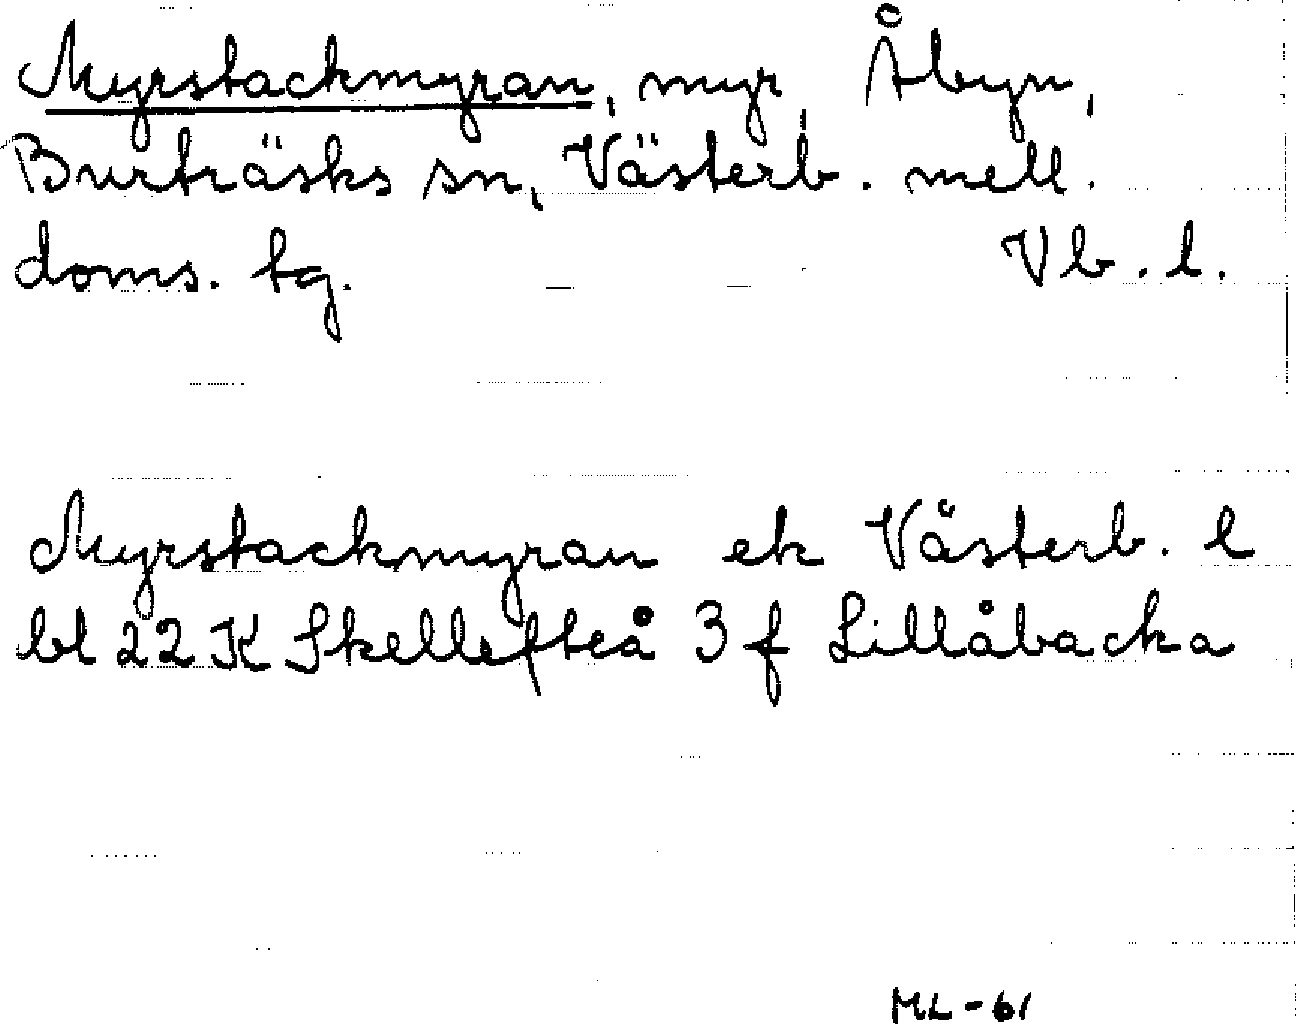 Myrstackmyran, myr, Åbyn,
Burträsks sn, Västerb. mell.
doms. tg. Vb. l.
Myrstackmyran ek Västerb. l
bl 22 K Skellefteå 3 f Lillåbacka
ML-61